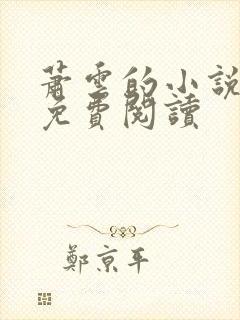 蕭雲的小說
免費閱讀
鄭京平